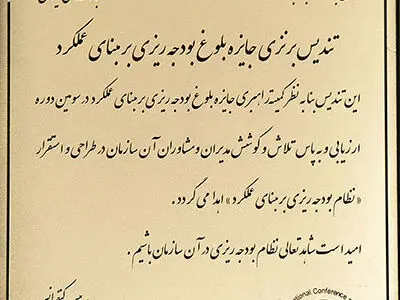 تندیس برنزی جایزه بلوغ بودجه ریزی بر مبنای عملکرد
این تندیس بنا به نظر کمیته راهبری جایزه بلوغ بودجه ریزی بر مبنای عملکرد در سومین دوره
ارزیابی و به پاس تلاش و کوشش مدیران و مشاوران آن سازمان در طراحی و استقرار
« نظام بودجه ریزی بر مبنای عملکرد » اهدا می گردد .
امید است شاهد تعالی نظام بودجه ریزی در آن سازمان باشیم .
ational Conference